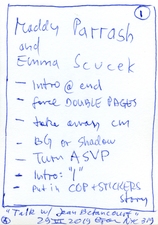 1
Maddy Parrash
and
Emma Scucek
- Intro @ end
- force DOUBLE PAGES
- take away cm
- BG or Shadow
- Turn ASVP
- Intro: "I"
- Put in COP + STICKERS
Story
"Talk w/ Jean Betancourt"
29 2019